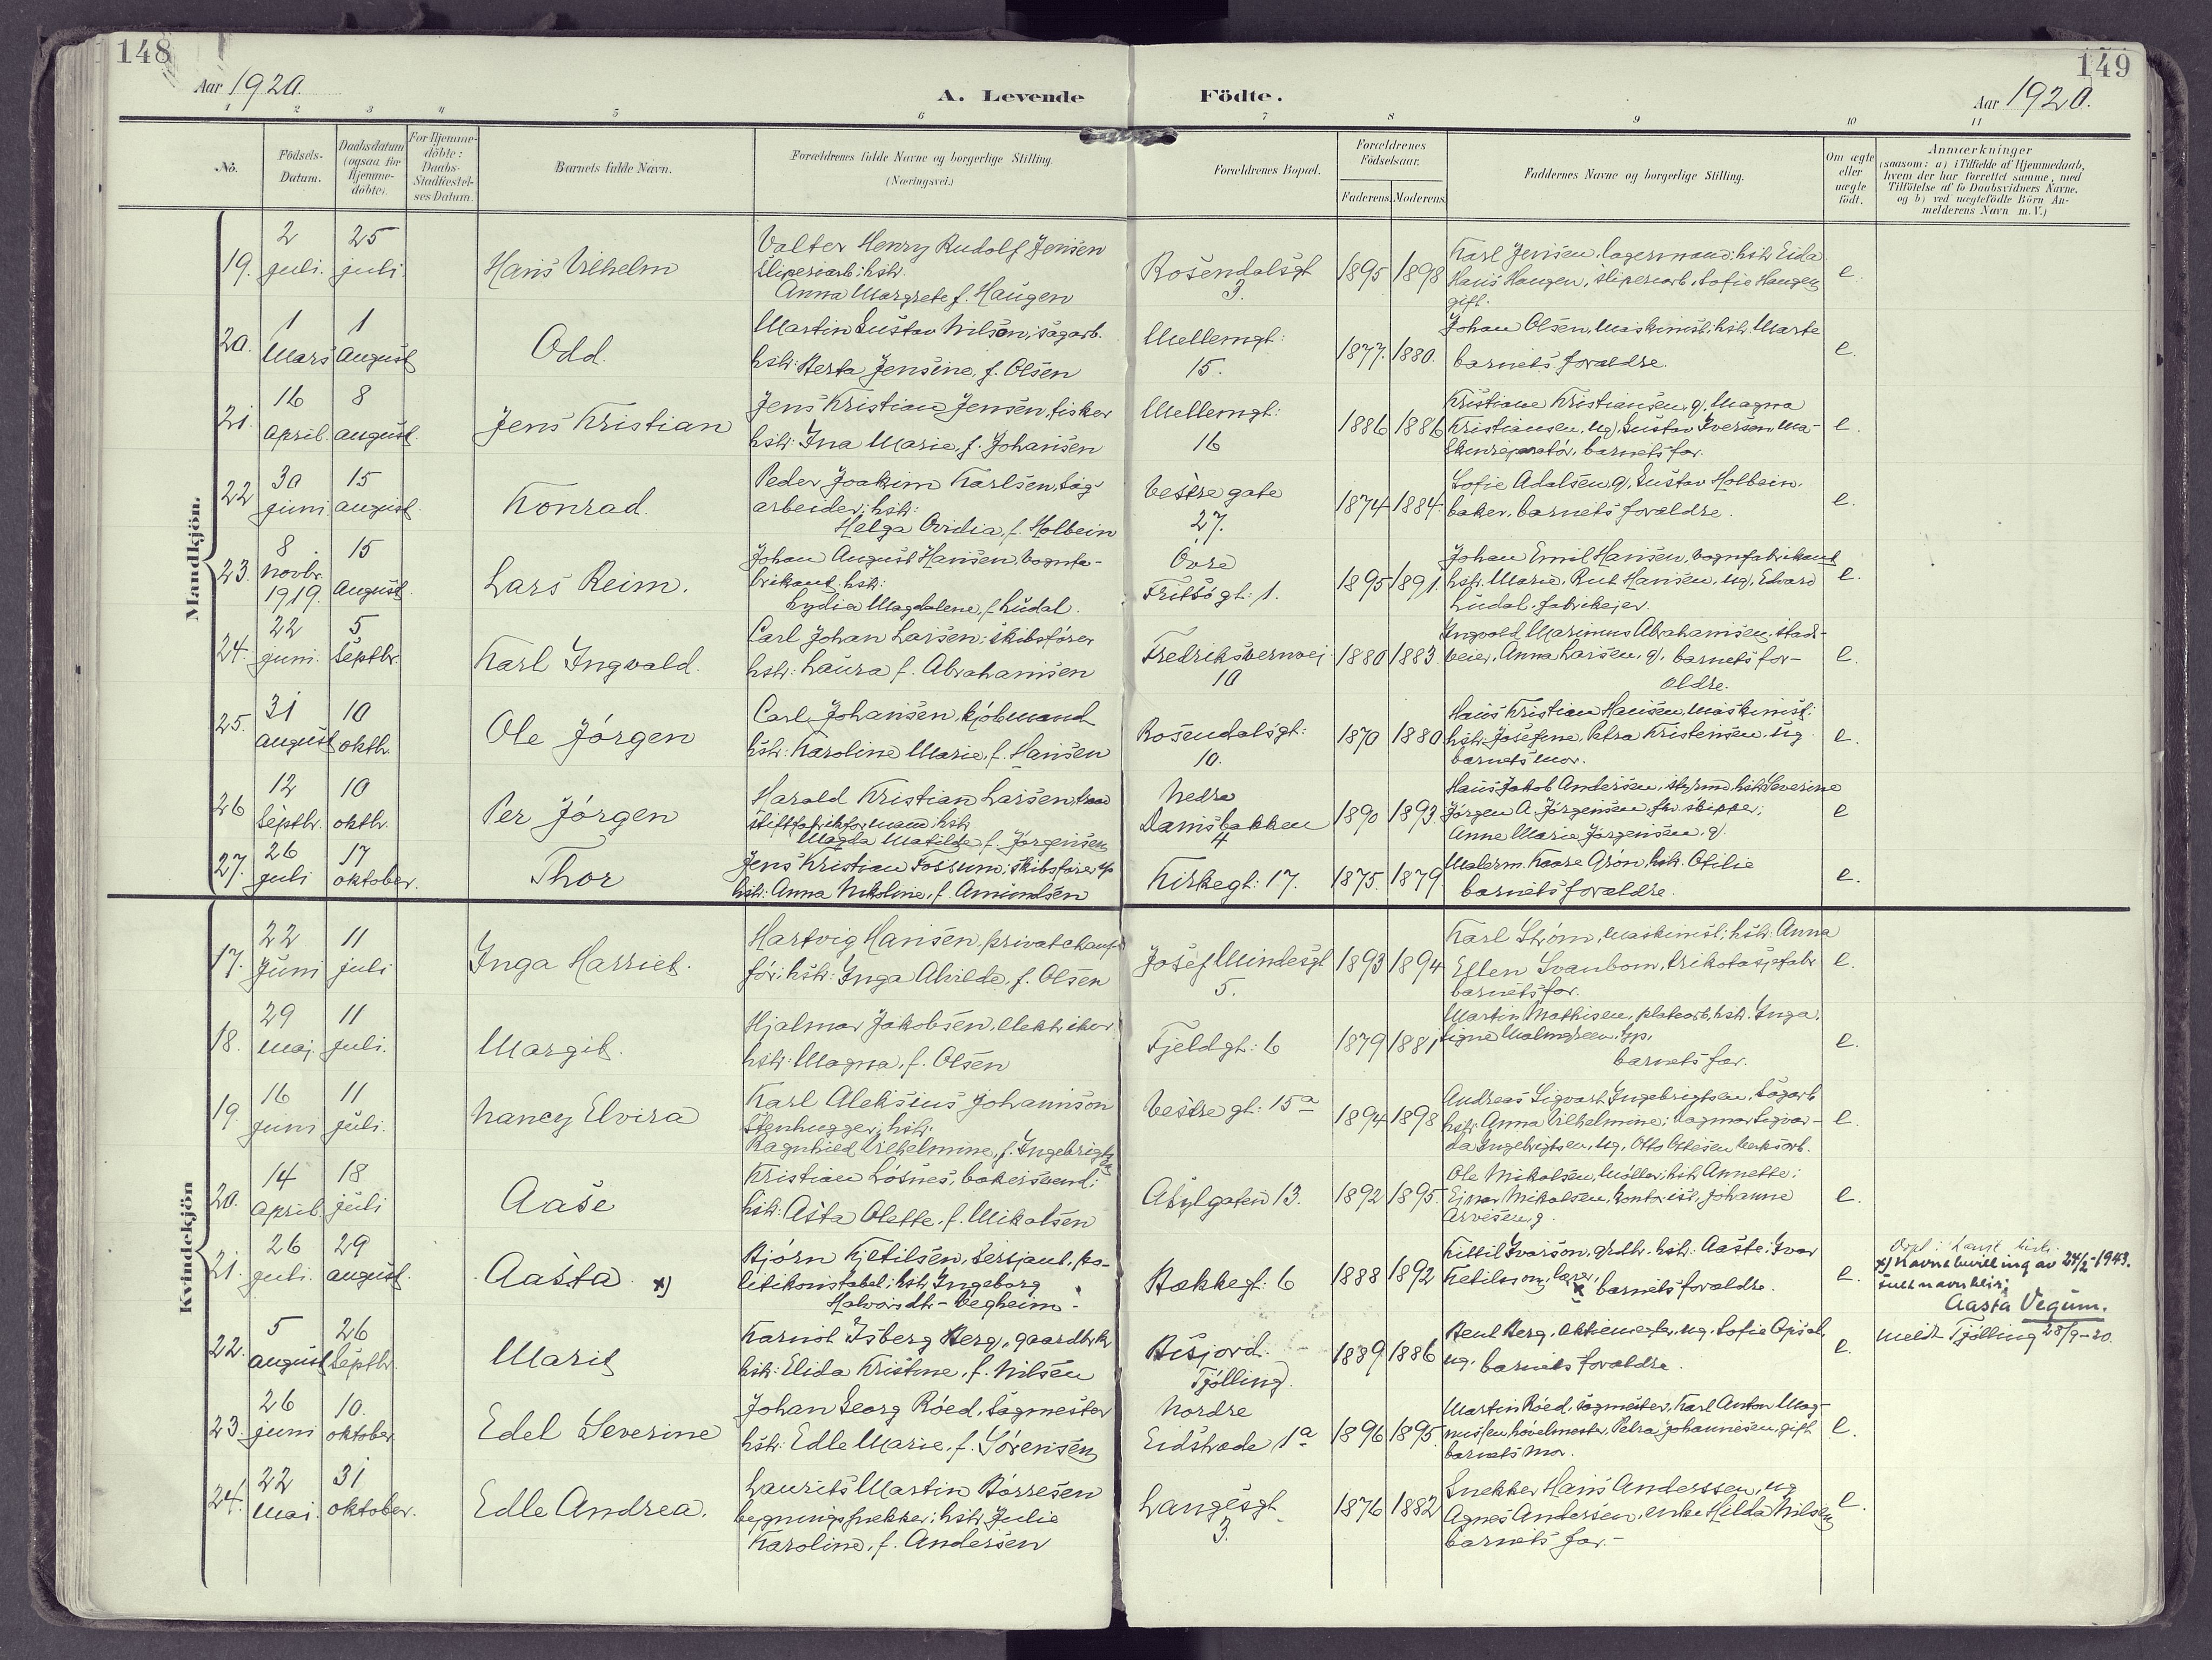 148
149
Aar 1920.
A. Levende Födte.
Aar 1920.
1 2 3 4 5 6 7 8 9 10 11
No.
Födsels-
Datum.
Daabsdatum
(ogsaa for
Hjemme-
döbte).
For Hjemme-
döbte:
Daabs-
Stadfæstel-
ses Datum.
Barnets fulde Navn.
Forældrenes fulde Navne og borgerlige Stilling.
(Næringsvei.)
Forældrenes Bopæl.
Forældrenes
Födselsaar.
Faderens. Moderens.
Faddernes Navne og borgerlige Stilling.
Om ægte
eller
uægte
födt.
Anmærkninger
(saasom: a) i Tilfælde af Hjemmedaab,
hvem der har forrettet samme, med
Tilföielse af to Daabsvidners Navne,
og b) ved uægtefödte Börn An-
melderens Navn m. V.)
Mandkjön.
19.
2
juli.
25
juli.
Hans Vilhelm
Valter Henry Rudolf Jensen
sliperiarb: hstr.
Anna Margrete f. Haugen
Rosendalsgt
3.
1895 1898
Karl Jensen, lagermand; hstr Eida
Hans Haugen, sliperiarb, Sofie Haugen
gift.
e.
20.
1
Mars
1
August
Odd.
Martin Gustav Nilson, sagarb.
hstr: Berta Jensine, f. Olsen
Mellemgt:
15.
1877. 1880.
Johan Olsen, Maskinist; hstr. Marte
barnets forældre.
e.
21.
16
april.
8
august.
Jens Kristian
Jens Kristian Jensen, fisker
hstr: Ina Marie, f. Johansen
Mellemgt:
16
1886 1886
Kristiane Kristiansen, g, Magna
Kristiansen, ug, Gustav Iversen, Ma-
skinreparatör, barnets far.
e.
22
30
juni
15
august.
Konrad.
Peder Joakim Karlsen, sag-
arbeider; hstr:
Helga Ovidia, f. Holbein
Vestre gate
27.
1874 1884.
Sofie Adalsen, g, Gustav Holbein,
baker, barnets forældre.
e.
23.
8
novbr.
1919.
15
August.
Lars Reim.
Johan August Hansen, vognfa-
brikant; hstr:
Lydia Magdalene, f Lüdal.
Övre
Fritsögt: 1.
1895 1891.
Johan Emil Hansen, vognfabrikant
hstr. Marie, Rut Hansen, ug, Edvard
Lüdal, fabrikejer.
e.
24.
22
juni.
5
Septbr.
Karl Ingvald.
Carl Johan Larsen; skibsförer
hstr: Laura f. Abrahamsen
Fredriksvernvej
10
1880 1883.
Ingvald Marinius Abrahamsen,
veier, Anna Larsen, g, barnets for-
ældre.
e.
25.
31
august
10
oktbr.
Ole Jörgen
Carl Johansen, kjöbmand
hstr: Karoline Marie, f. Hansen
Rosendalsgt:
10.
1870 1880
Hans Kristian Hansen, Maskinist;
hstr: Josefine, Petra Kristensen, ug
barnets mor.
e.
26
12
Septbr.
10
oktbr.
Per Jörgen
Harald Kristian Larsen, traad
stiftfabrikformand; hstr
Magda Matilde, f. Jörgensen
Nedre
Damsbakken
4
1890 1893
Hans Jakob Andersen, hstr Severine
Jörgen A. Jörgensen, fhv skipper;
Anne Marie Jörgensen, g.
e
27.
26
juli
17
oktober.
Thor
Jens Kristian Fossum; skibsförer
hstr: Anna Nikoline, f. Amundsen
Kirkegt: 17.
1875. 1879
Malerm. Kaare Grön, hstr. Otilie
barnets forældre.
e.
Kvindekjön
17.
22
Juni
11
juli
Inga Harriet.
Hartvig Hansen, privatchauf-
för; hstr: Inga Alvilde, f. Olsen
Josef Mindesgt
5.
1893 1894
Karl Ström, maskinist; hstr: Anna
Ellen Svanbom, trikotasjefabr
barnets far.
e.
18.
29
Maj.
11
juli.
Margit.
Hjalmar Jakobsen, elektriker
hstr: Magna, f. Olsen
Fjeldgt: 6
1879 1881
Martin Mathisen, platearb, hstr. Inga,
Signe Malmgreen,
barnets far.
e.
19.
16
juni
11
juli.
Nancy Elvira
Karl Aleksius Johannison
Stenhugger; hstr.
Ragnhild Vilhelmine, f. Ingebrigtsen
Vestre gt: 15a
1894 1898
Andreas Sigvart Ingebrigtsen, Sagarb
hstr: Anna Vilhelmine; Dagmar Sigvar-
da Ingebrigtsen, ug, Otto Ottesen verksarb.
e.
20.
14
april.
18
juli
Aase
Kristian Lösnes, bakersvend;
hstr: Asta Olette, f. Mikalsen
Asylgaten 13.
1892 1895.
Ole Mikalsen, Möller; hstr Annette;
Ejnar Mikalsen, kontorist, Johanne
Arvesen, g.
e.
21.
26
juli.
29
august.
Aasta x)
Björn Kjetilsen, Sersjant, po-
litikonstabel; hstr: Ingeborg
Halvorsdtr- Vegheim.
Bækkegt: 6
1888 1892
Kittil Ivarson, grdbr. hstr. Aaste; Ivar
Ketilson, lærer, barnets forældre.
e.
x) Navnebevilling av 24/2-1943.
fullt navn blir:
Aasta Vegum.
22.
5
august
26
Septbr.
Marit
Karniol Isberg Berg, gaardbr
hstr: Elida Kristine, f. Nilsen
Bisjord.
Tjölling.
1889 1886
Berg, aktiemegler, ug, Sofie Opsal,
ug. barnets forældre.
e.
meldt Tjölling 28/9-20.
23.
26
juni
10.
oktober
Edel Severine
Johan Georg Röed, Sagmester
hstr: Edle Marie, f. Sörensen
Nordre
Eidstræde 1a
1896 1895.
Martin Röed, sagmester, Karl Anton Mag-
nussen, hövelmester, Petra Johannesen, gift
barnets mor.
e.
24.
22
Mai.
31
oktober.
Edle Andrea.
Laurits Martin Börresen
bygningssnekker; hstr. Julie
Karoline, f. Andersen
Langesgt
3.
1876 1882
Snekker Hans Anderssen, ug
Agnes Andersen, enke Hilda Nilsen
barnets far.-
e.